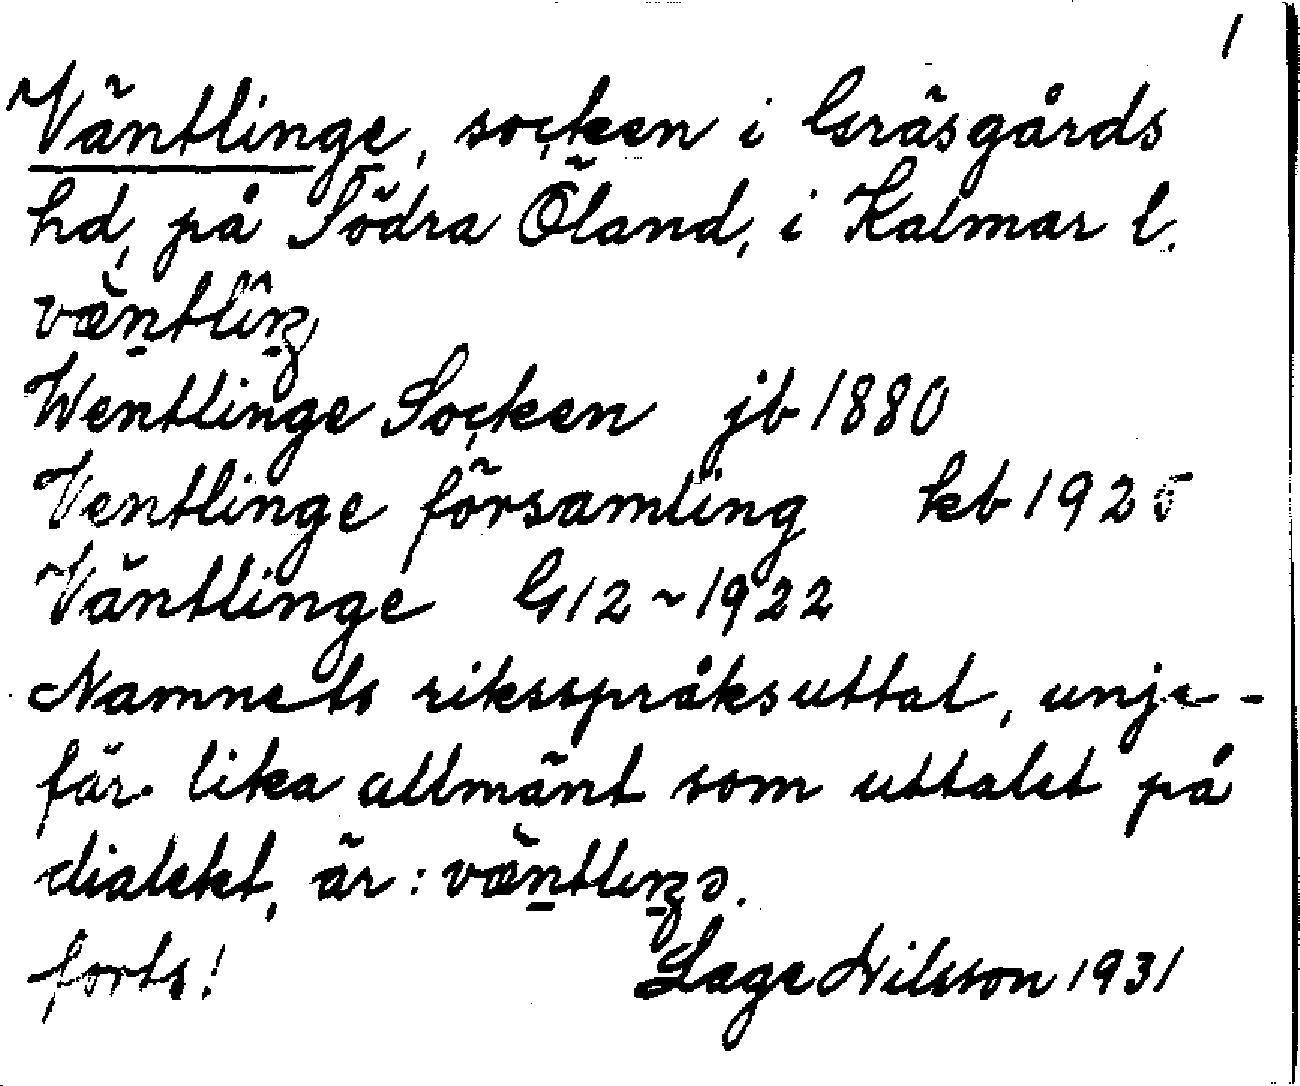 1
Väntlinge, socken i Gräsgårds
hd, på Södra Öland, i Kalmar l.
Wentlinge Socken jb 1880
Ventlinge församling kb 1925
Väntlinge G12~1922
Namnets riksspråksuttal, unje-
fär lika allmänt som uttalet på
dialekt, är:
forts! Lage Nilsson 1931